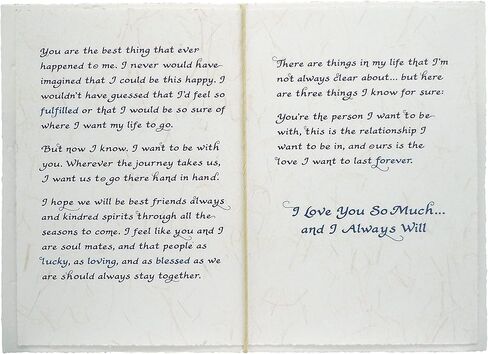 You are the best thing that ever
happened to me. I never would have
imagined that I could be this happy. I
wouldn't have guessed that I'd feel so
fulfilled or that I would be so sure of
where I want my life to go.
But now I know. I want to be with
you. Wherever the journey takes us,
I want us to go there hand in hand.
I hope we will be best friends always
and kindred spirits through all the
seasons to come. I feel like you and I
are soul mates, and that people as
lucky, as loving, and as blessed as we
are should always stay together.
There are things in my life that I'm
not always clear about... but here
are three things I know for sure:
You're the person I want to be
with, this is the relationship I
want to be in, and ours is the
love I want to last forever.
I Love You So Much...
and I Always Will